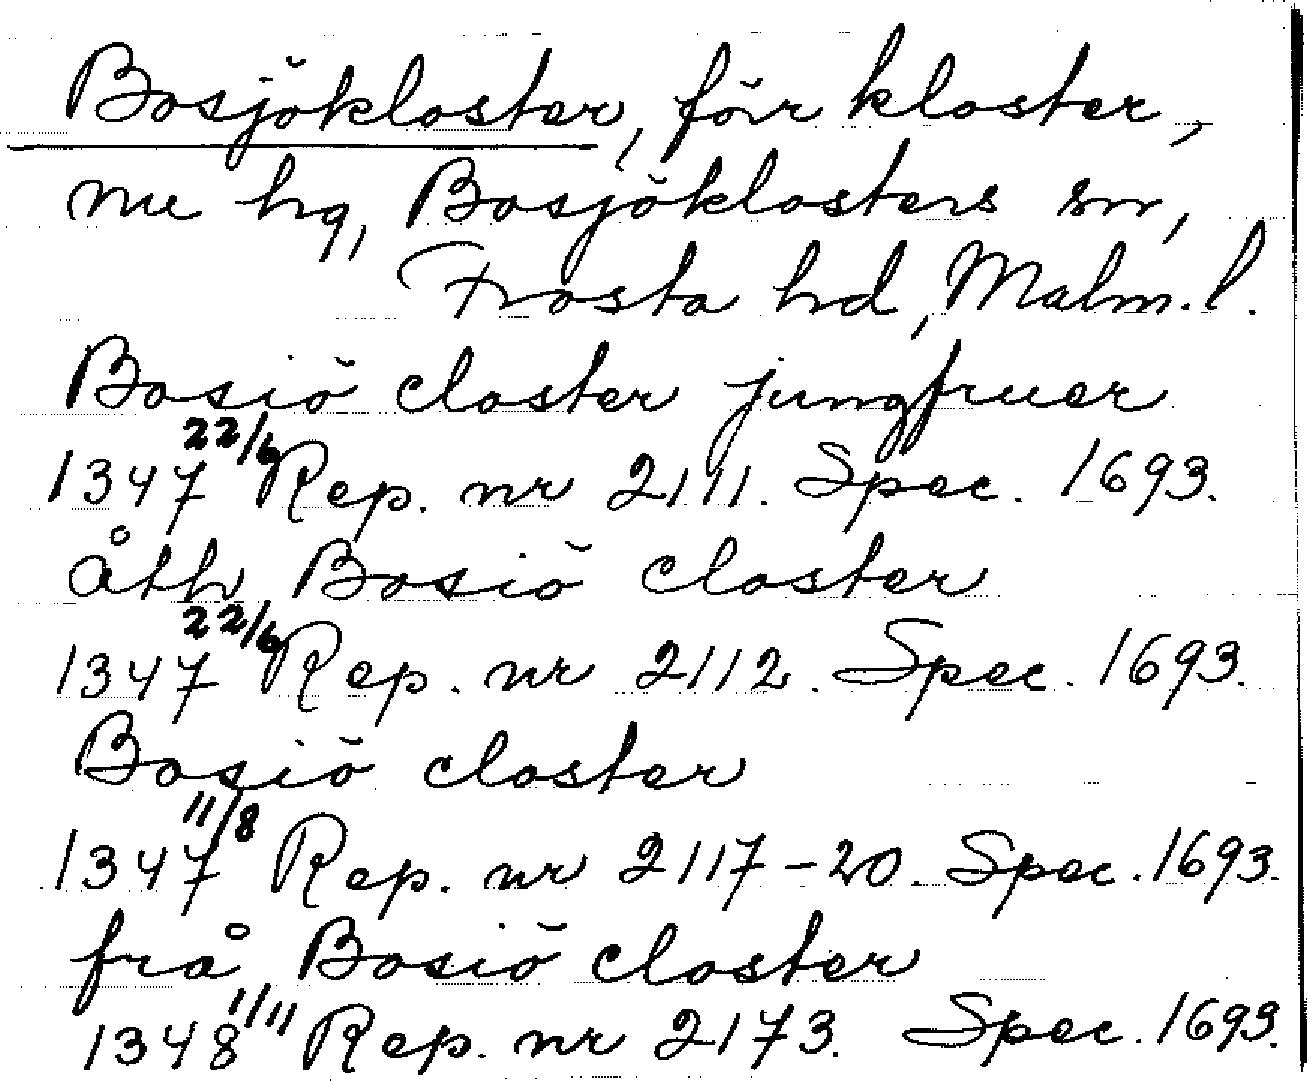 Bosjökloster, förr kloster,
nu hg, Bosjöklosters sn,
Frosta hd, Malm. l.
Bosiö closter jungfruer
1347 22/6 Rep. nr 2111. Spec. 1693.
åth Bosiö closter
1347 22/6 Rep. nr 2112. Spec. 1693.
Bosiö closter
1347 11/8 Rep. nr 2117-20. Spec. 1693.
frå Bosiö closter
1348 1/11 Rep. nr 2173. Spec. 1693.